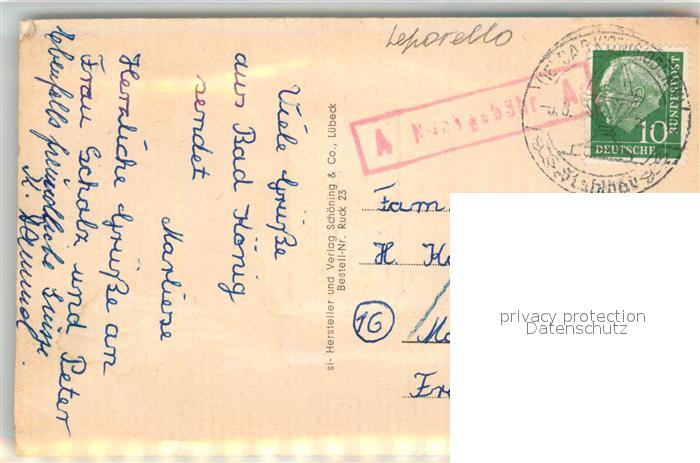 Leporello
Viele Grüße
aus Bad König
sendet
Marliese
Herzliche Grüße an
Frau Scholz und Peter
Ebenfalls freundliche Grüße
K.
si- Hersteller und Verlag Schöning & Co., Lübeck
Bestell-Nr. Ruck 23
A Nachgebühr A
BAD KÖNIG
10
DEUTSCHE
BUNDESPOST
Fam
H.
16
privacy protection
Datenschutz